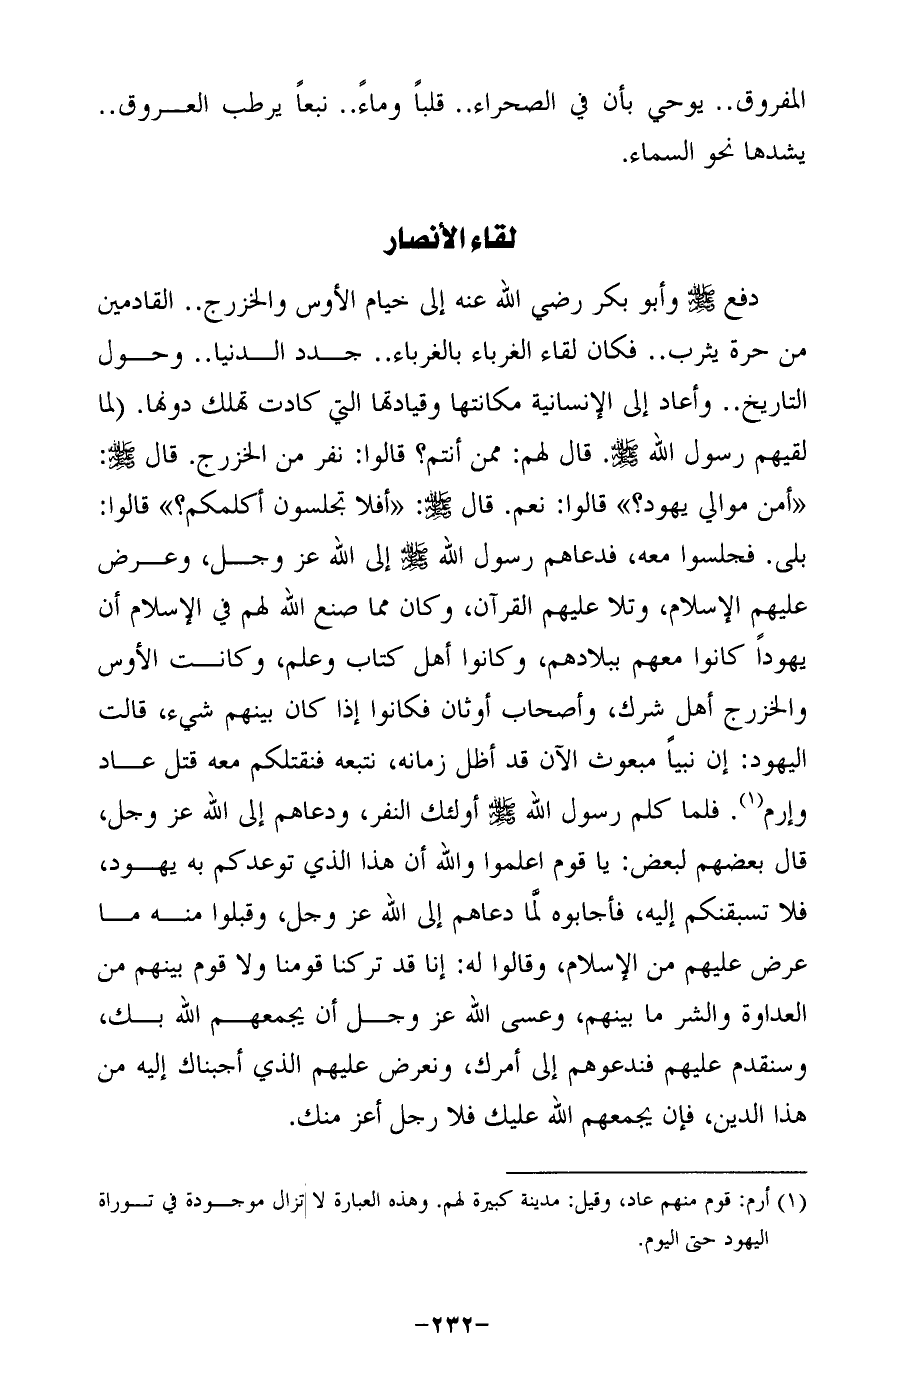 المفروق.. يوحي بأن في الصحراء.. قلباً وماءً.. نبعاً يرطب العـــروق..
يشدها نحو السماء.
لقاء الأنصار
دفع ﷺ وأبو بكر رضي الله عنه إلى خيام الأوس والخزرج.. القادمين
من حرة يثرب.. فكان لقاء الغرباء بالغرباء.. جـــدد الـــدنيا.. وحـــول
التاريخ.. وأعاد إلى الإنسانية مكانتها وقيادتها التي كادت تهلك دونها. (لما
لقيهم رسول الله ﷺ. قال لهم: ممن أنتم؟ قالوا: نفر من الخزرج. قال ﷺ:
«أمن موالي يهود؟» قالوا: نعم. قال ﷺ: «أفلا تجلسون أكلمكم؟» قالوا:
بلى. فجلسوا معه، فدعاهم رسول الله ﷺ إلى الله عز وجـــل، وعـــرض
عليهم الإسلام، وتلا عليهم القرآن، وكان مما صنع الله لهم في الإسلام أن
يهوداً كانوا معهم ببلادهم، وكانوا أهل كتاب وعلم، وكانـــت الأوس
والخزرج أهل شرك، وأصحاب أوثان فكانوا إذا كان بينهم شيء، قالت
اليهود: إن نبياً مبعوث الآن قد أظل زمانه، نتبعه فنقتلكم معه قتل عـــاد
وإرم(١). فلما كلم رسول الله ﷺ أولئك النفر، ودعاهم إلى الله عز وجل،
قال بعضهم لبعض: يا قوم اعلموا والله أن هذا الذي توعدكم به يهـــود،
فلا تسبقنكم إليه، فأجابوه لمَّا دعاهم إلى الله عز وجل، وقبلوا منـــه مـــا
عرض عليهم من الإسلام، وقالوا له: إنا قد تركنا قومنا ولا قوم بينهم من
العداوة والشر ما بينهم، وعسى الله عز وجـــل أن يجمعهـــم الله بـــك،
وسنقدم عليهم فندعوهم إلى أمرك، ونعرض عليهم الذي أجبناك إليه من
هذا الدين، فإن يجمعهم الله عليك فلا رجل أعز منك.
(١) أرم: قوم منهم عاد، وقيل: مدينة كبيرة لهم. وهذه العبارة لا تزال موجـــودة في تـــوراة
اليهود حتى اليوم.
-٢٣٢-